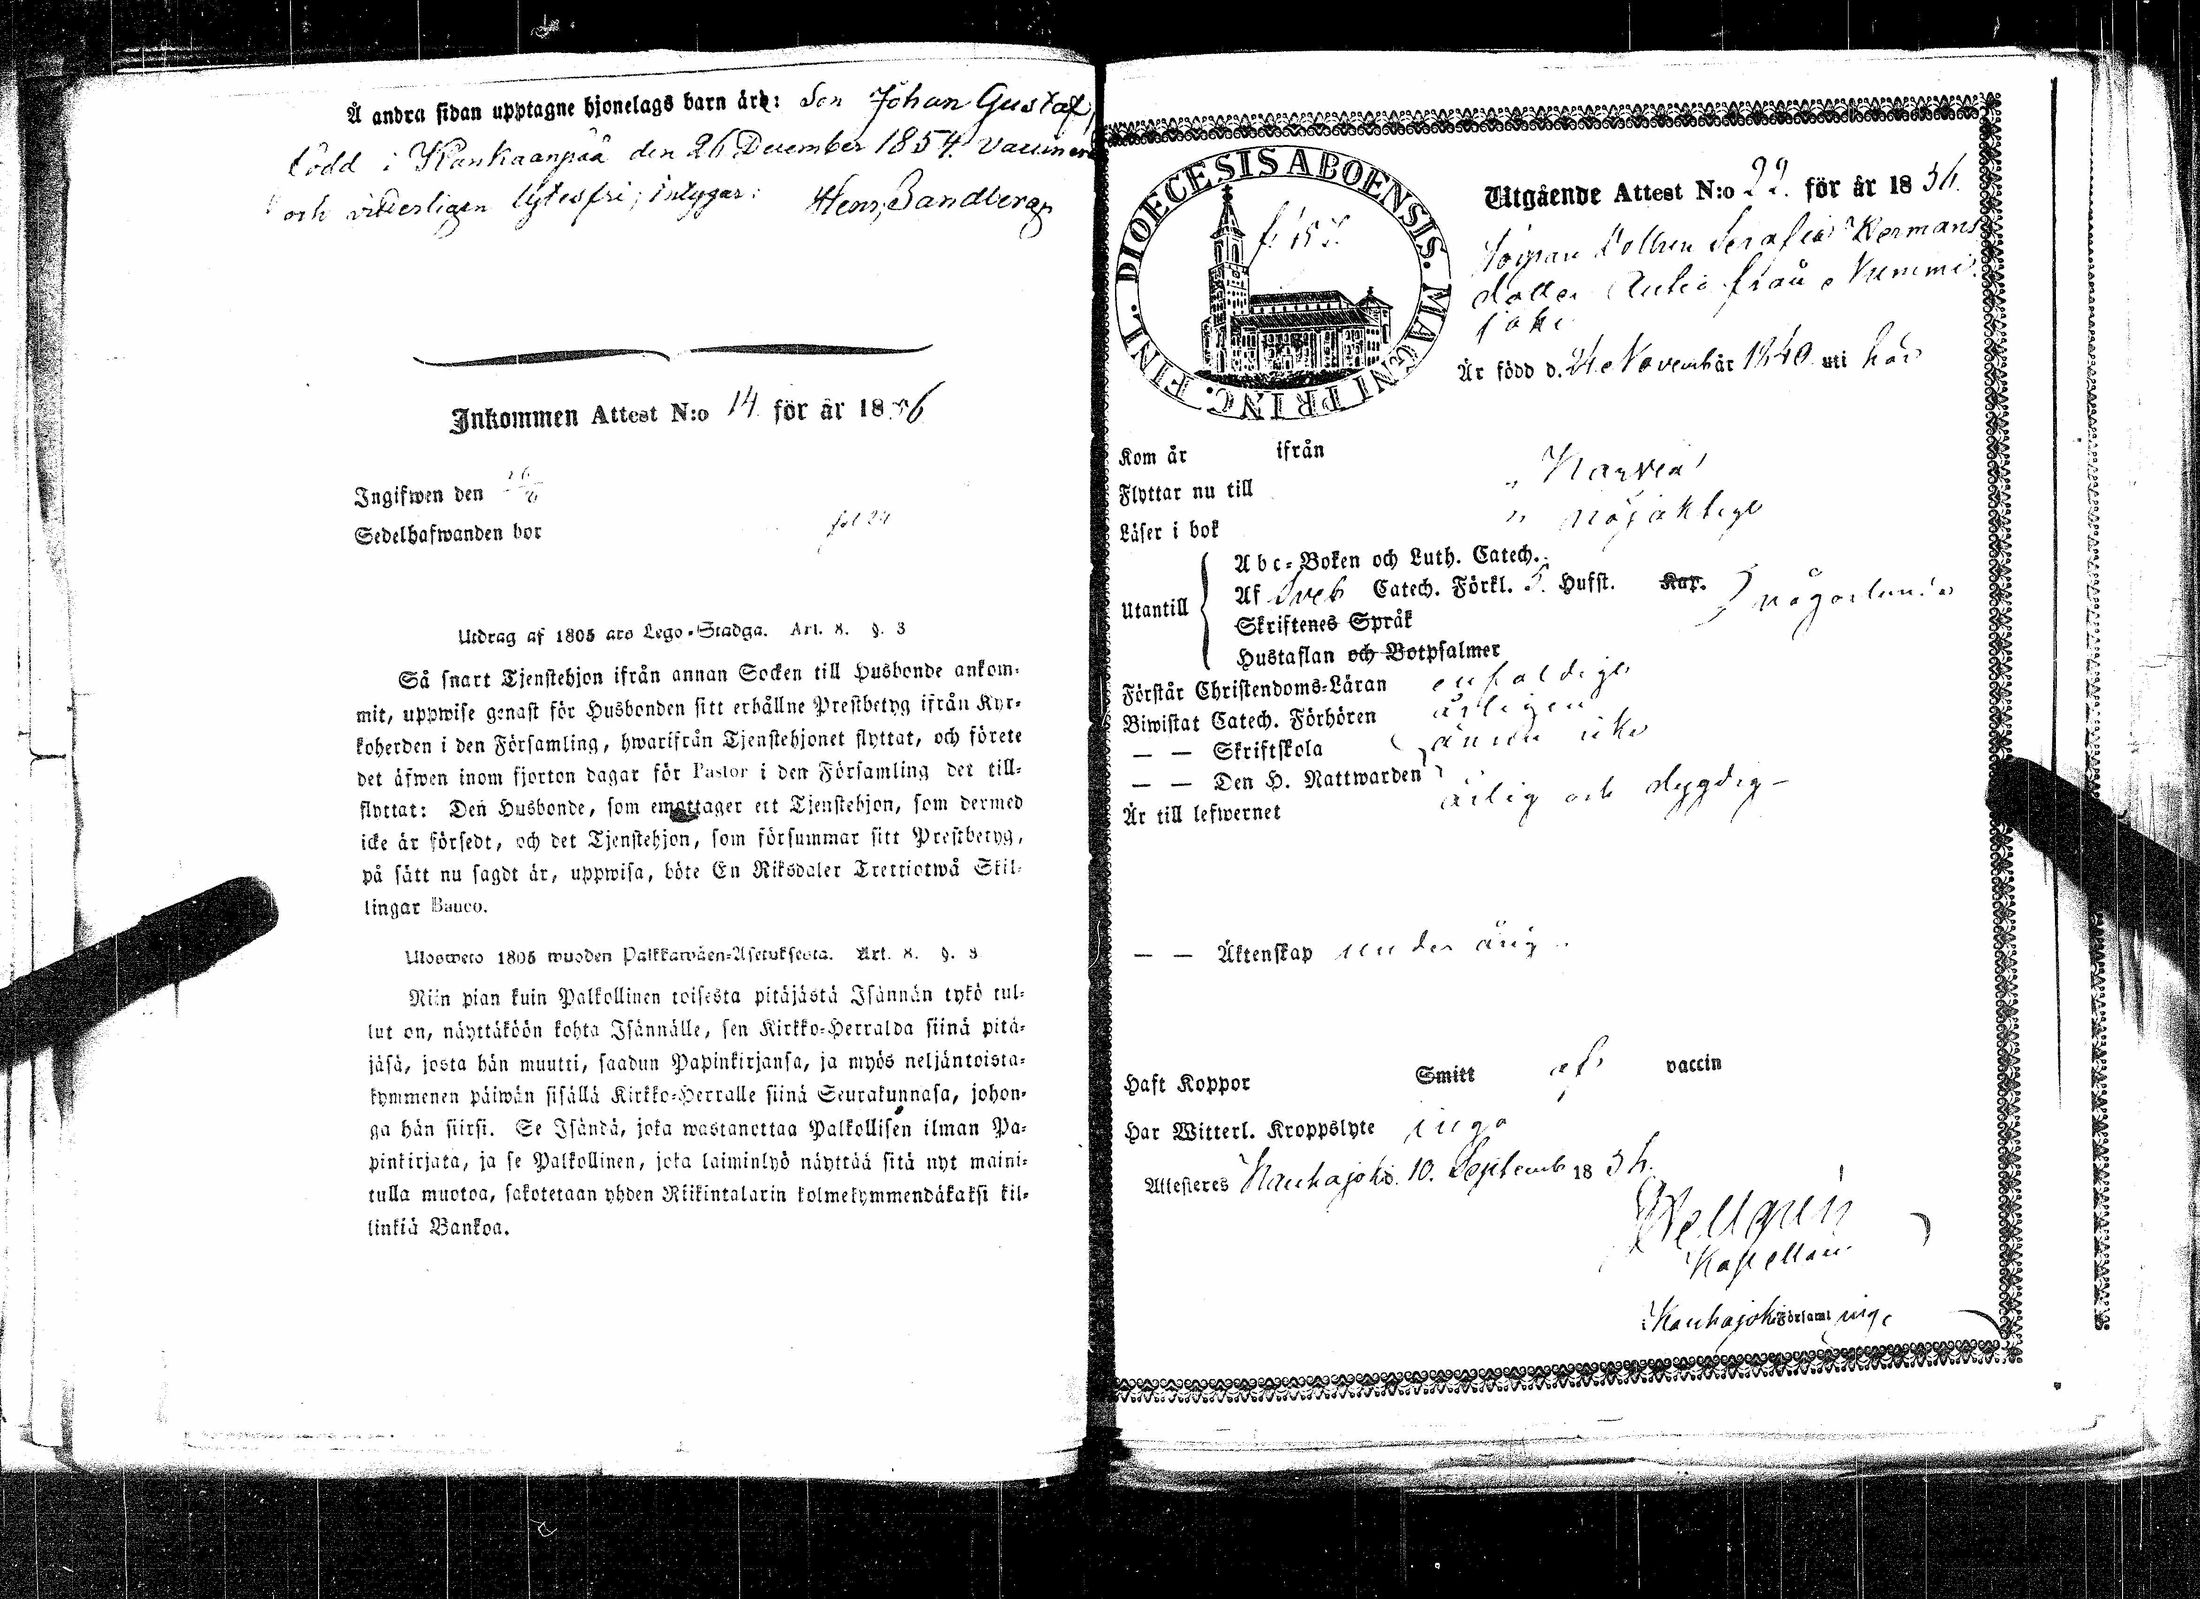 Å andra sidan upptagne hjonelags barn är: Son Johan Gustaf,
född i Kankaanpää den 26 December 1854. vaccinerad
och vitterligen lytesfri; intygar: Henr, Sandberg
Inkommen Attest N:o 14. för år 1856
Ingifwen den
Sedelhafwanden bor fol 24
Utdrag af 1805 års Lego-Stadga. Art. 8. §. 3
Så snart Tjenstehjon ifrån annan Socken till Husbonde ankom-
mit, uppwise genast för Husbonden sitt erhållne Prestbetyg ifrån Kyr-
koherden i den Församling, hwarifrån Tjenstehjonet flyttat, och förete
det äfwen inom fjorton dagar för Pastor i den Församling det till-
flyttat: Den Husbonde, som emottager ett Tjenstehjon, som dermed
icke är försedt, och det Tjenstehjon, som försummar sitt Prestbetyg,
på sätt nu sagdt är, uppwisa, böte En Riksdaler Trettiotwå Skil-
lingar Banco.
Ulosweto 1805 wuoden Palkkawäen-Asetuksesta. Art. 8. §. 3
Niin pian kuin Palkollinen toisesta pitäjästä Isännän tykö tul-
lut on, näyttäköön kohta Isännälle, sen Kirkko-Herralda siinä pitä-
jäsä, josta hän muutti, saadun Papinkirjansa, ja myös neljäntoista-
kymmenen päiwän sisällä Kirkko-Herralle siinä Seurakunnasa, johon-
ga hän siirsi. Se Isändä, joka wastanottaa Palkollisen ilman Pa-
pinkirjata, ja se Palkollinen, joka laiminlyö näyttää sitä nyt maini-
tulla muotoa, sakotetaan yhden Riikintalarin kolmekymmendäkaksi kil-
linkiä Bankoa.
DIOECESIS ABOENSIS. MAGNI PRINC. FINL.
Utgående Attest N:o 22. för år 1856.
Serafia Hermans
dotter från Nummi
joki
Är född d. 24 November år 1840 uti här
Kom år ifrån
Flyttar nu till Karvia
Läser i bok nöjaktigt
Utantill
Abc-Boken och Luth. Catech.
Af Sveb Catech. Förkl. 5. Hufst. Kap.
Skriftenes Språk
Hustaflan och Botpsalmer
Förstår Christendoms-Läran enfaldigt
Biwistat Catech. Förhören årligen
— — Skriftskola ännu icke
— — Den H. Nattwarden
Är till lefwernet ärlig och dygdig
— — Äktenskap under årig
Haft Koppor Smitt af vaccin
Har Witterl. Kroppslyte inga
Attesteras Kauhajoki d. 10. Septemb 1856.
Kapellan
i Kauhajoki Församling